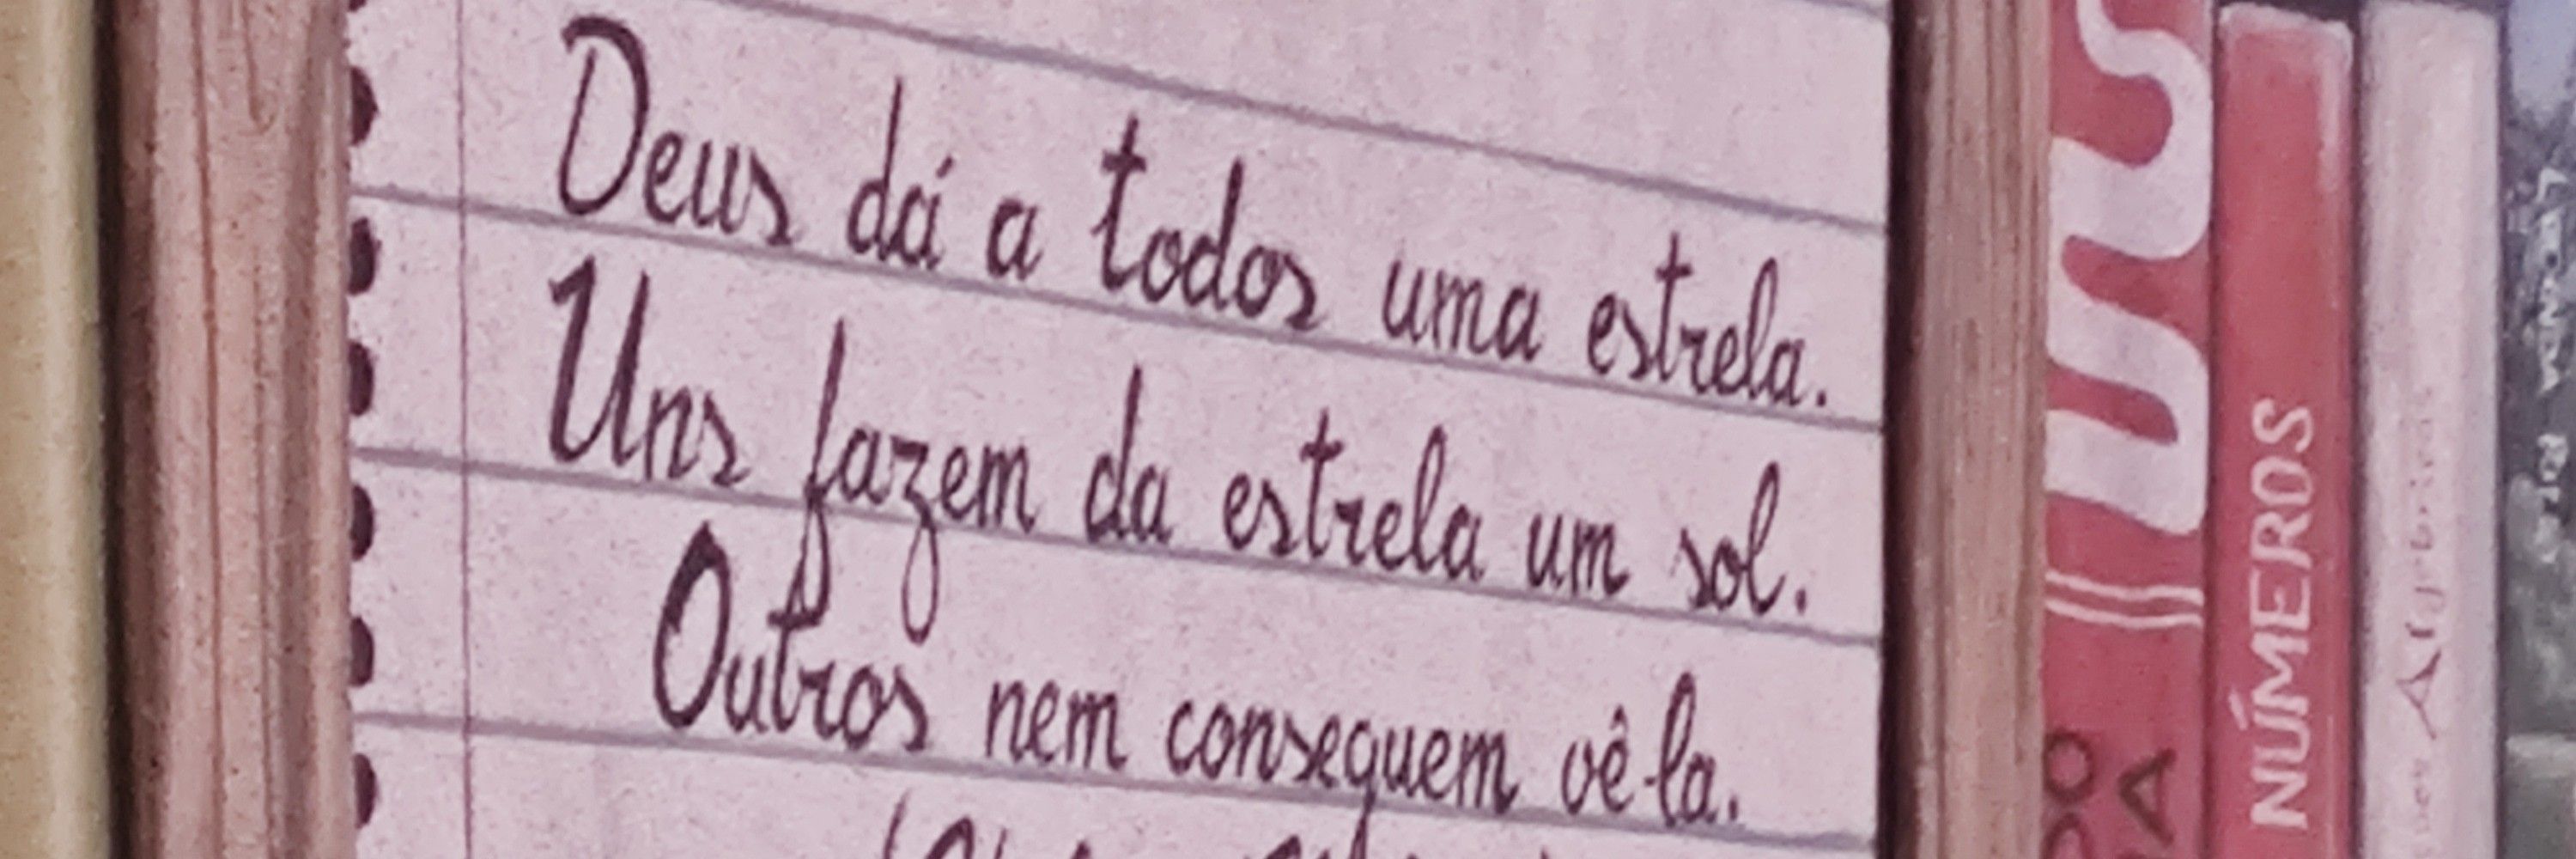 Deus dá a todos uma estrela.
Uns fazem da estrela um sol.
Outros nem conseguem vê-la.
NÚMEROS